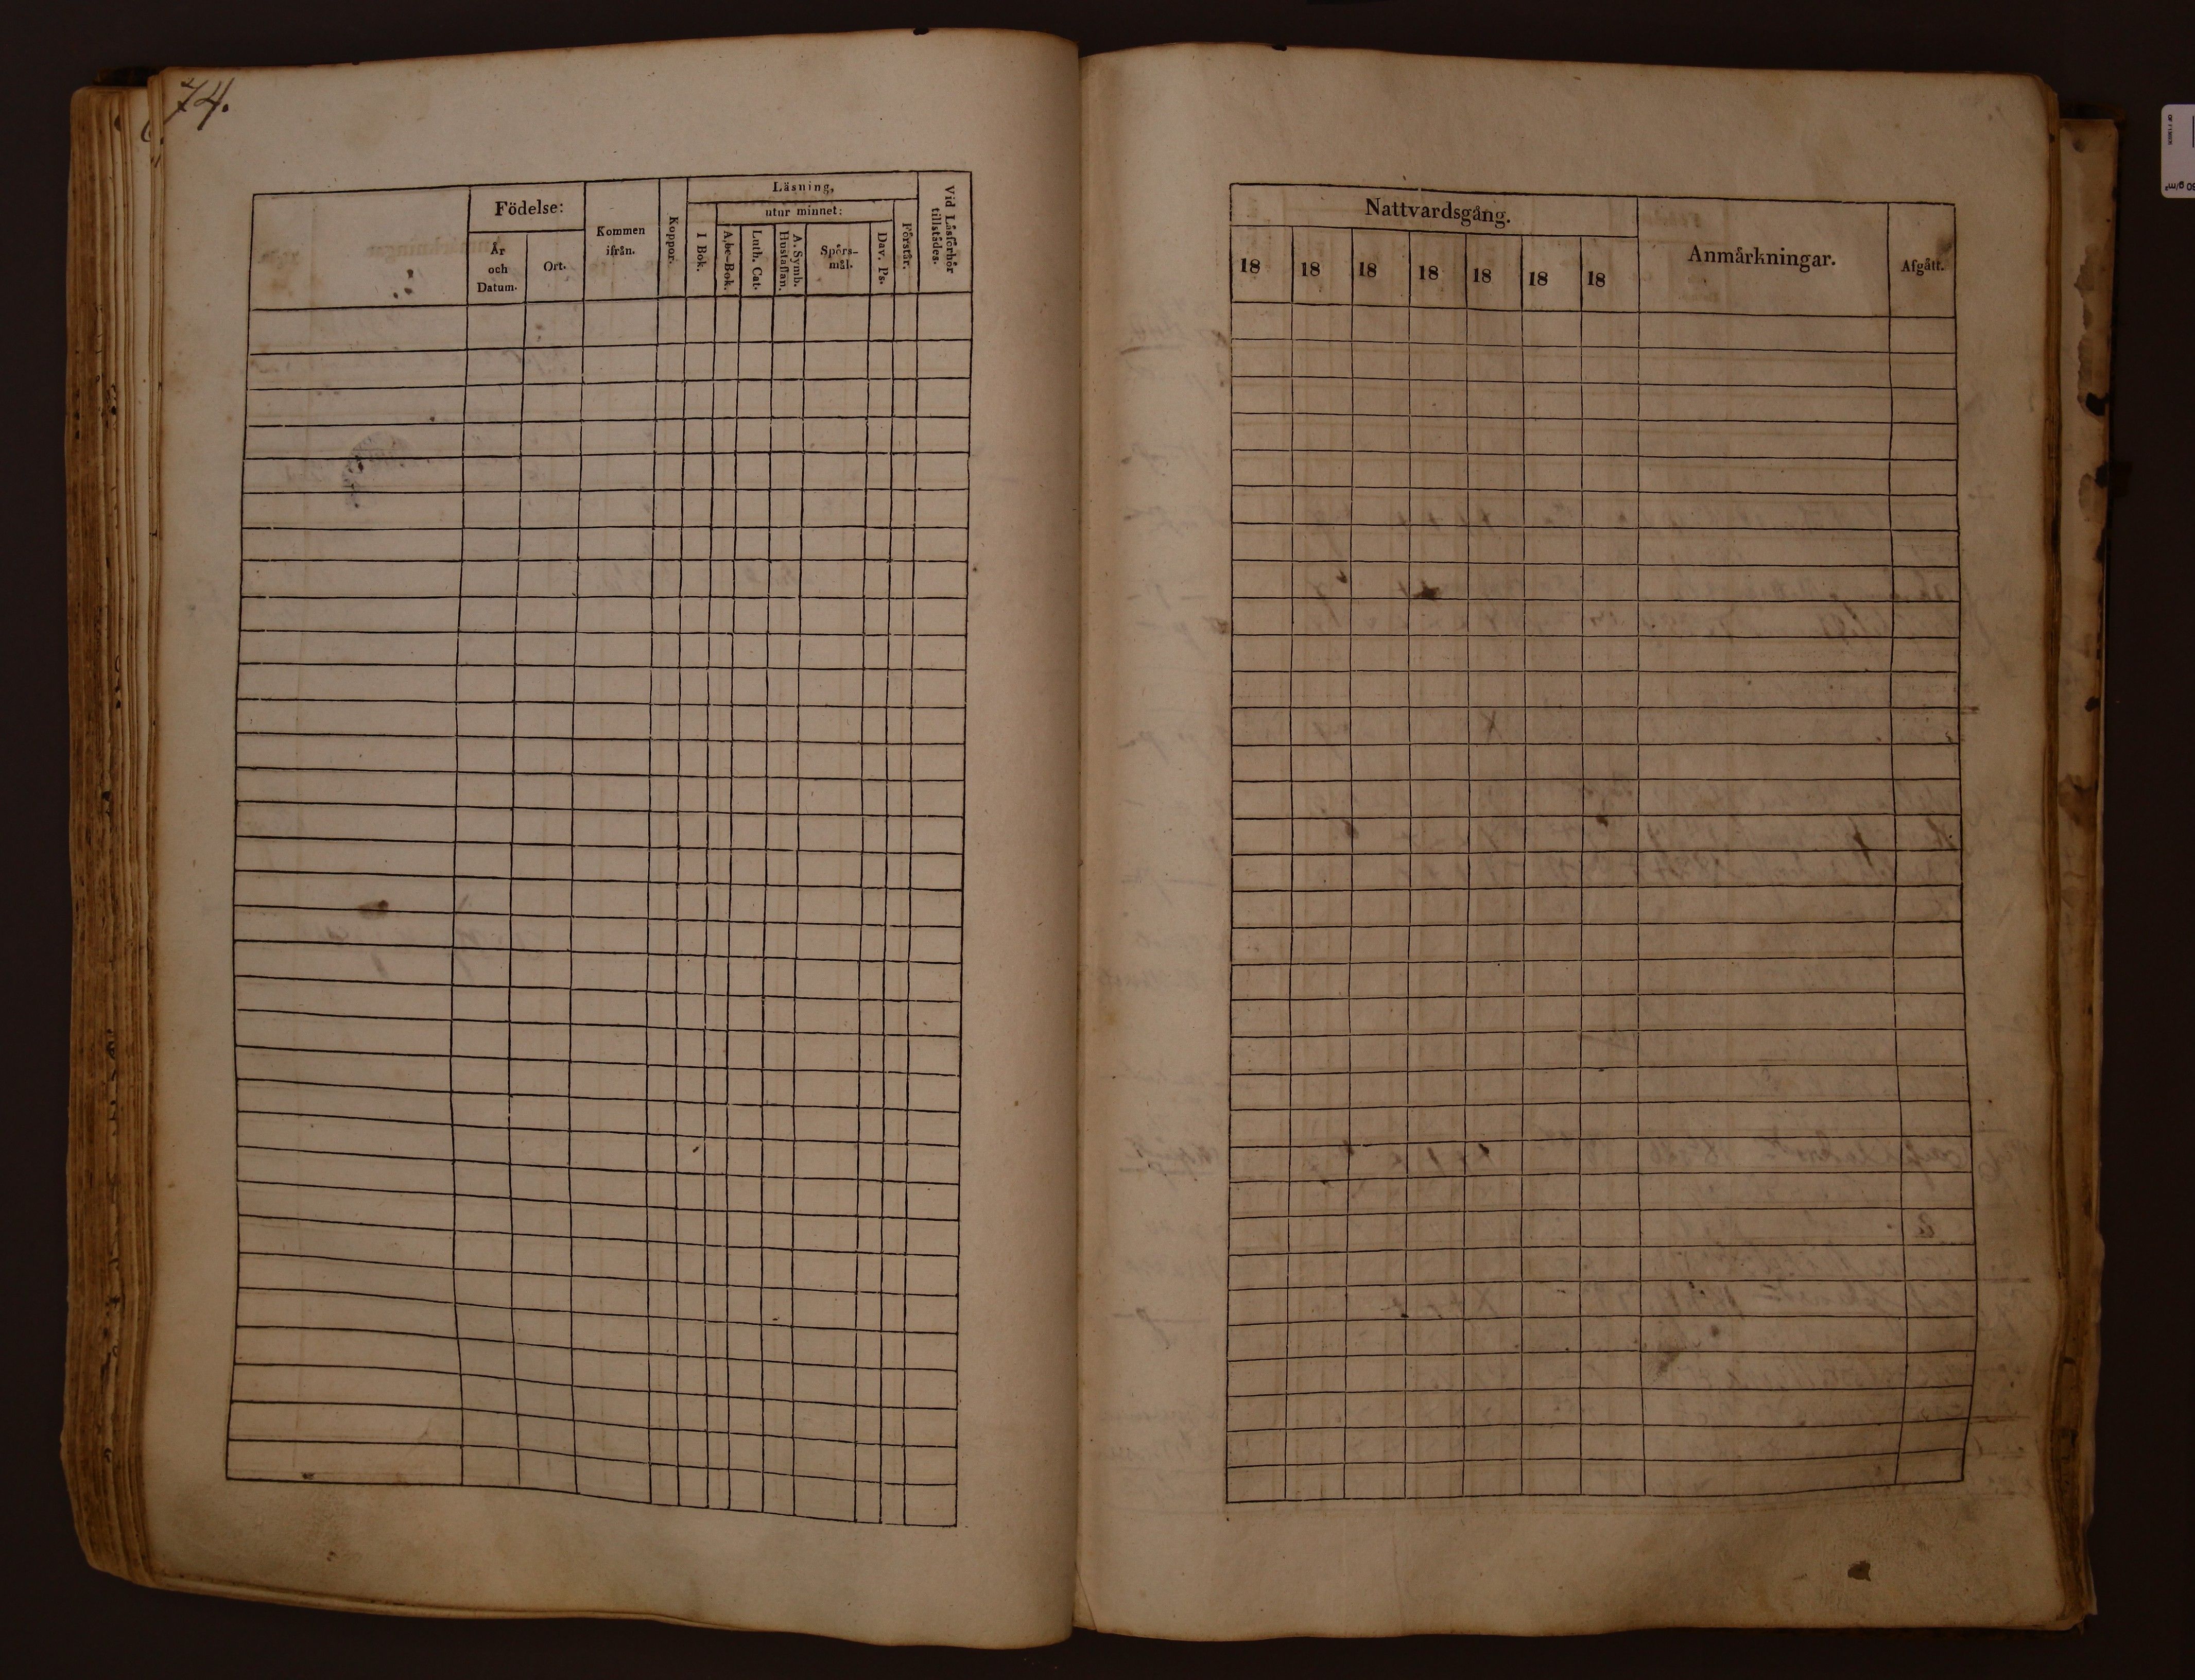 74.
Födelse:
År
och
Datum.
Ort.
Kommen
ifrån.
Koppor.
Läsning,
utur minnet:
I Bok.
Abc-Bok.
Luth. Cat.
A. Symb.
Hustaflan.
Spörs-
mål.
Dav. Ps.
Förstår.
Vid Läsförhör
tillstädes.
Nattvardsgång.
18 18 18 18 18 18 18
Anmärkningar.
Afgått.